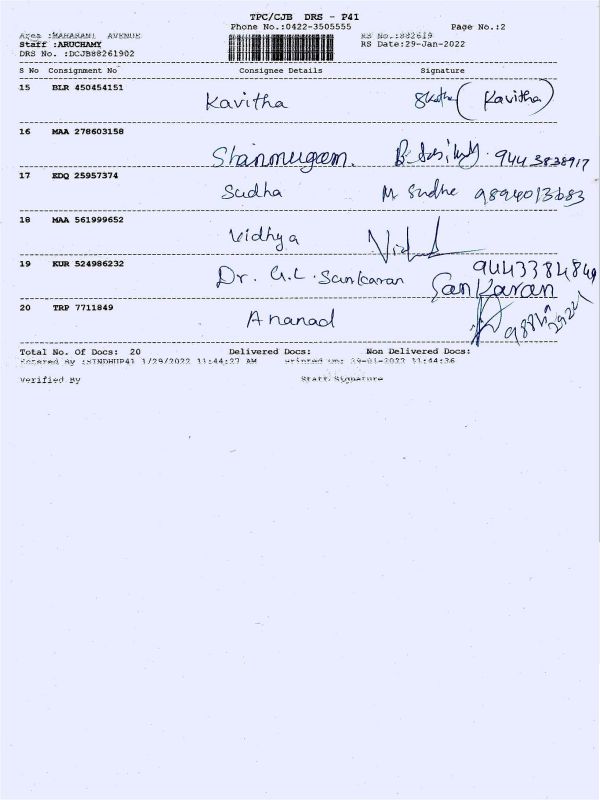 TPC/CJB DRS - P41
Phone No.:0422-3505555 Page No.:2
Area :MAHARANI AVENUE RS No.:882619
Staff :ARUCHAMY RS Date:29-Jan-2022
DRS No. :DCJB88261902
S No Consignment No Consignee Details Signature
15 BLR 450454151
Kavitha (Kavitha)
16 MAA 278603158
Shanmugam. 944 3838917
17 KDQ 25957374
Sudha M Sudha
18 MAA 561999652
Vidhya
19 KUR 524986232
Dr. G.L. Sankaran Sankaran
20 TRP 7711849
Ananad
Total No. Of Docs: 20 Delivered Docs: Non Delivered Docs:
Entered By :SINDHUP41 1/29/2022 11:44:27 AM Printed On: 29-01-2022 11:44:36
Verified By Staff Signature